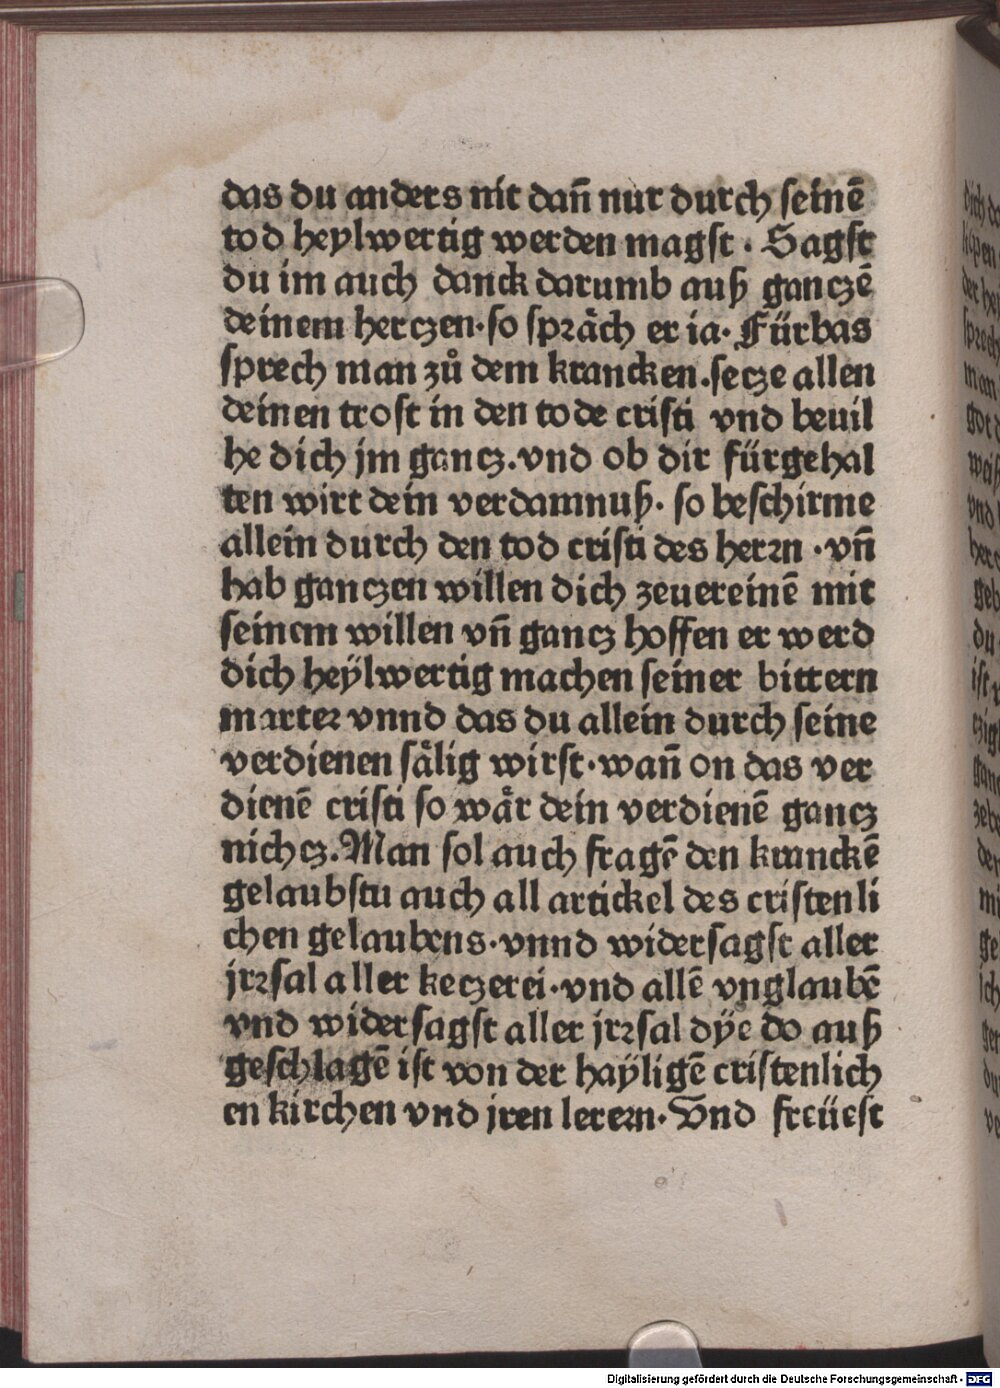 das du anders nit dañ nur durch seinē
tod heylwertig werden magst . Sagst
du im auch danck darumb auß ganczē
deinem herczen·so spräch er ia· Fürbas
sprech man zů dem krancken.secze allen
deinen trost in den tode cristi vnd beuil
he dich jm gancz.vnd ob dir fürgehal
ten wirt dein verdamnuß· so beschirme
allein durch den tod cristi des herꝛn ·vñ
hab ganczen willen dich zeuereinē mit
seinem willen vñ gancz hoffen er werd
dich heÿlwertig machen seiner bittern
marteꝛ vnnd das du allein durch seine
verdienen sälig wirst·wañ on das ver
dienē cristi so wär dein verdienē gancz
nichcz.Man sol auch fragē den kranckē
gelaubstu auch all artickel des cristenli
chen gelaubens·vnnd widersagst aller
jrꝛsal aller keczerei·vnd allē vnglaubē
vnd widersagst aller jrꝛsal dÿe do auß
geschlagē ist von der haÿligē cristenlich
en kirchen vnd jren lereꝛn· Vnd freüest
Digitalisierung gefördert durch die Deutsche Forschungsgemeinschaft · DFG